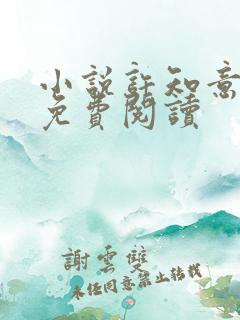 小說許知意
免費閱讀
謝雲雙
未經同意禁止轉載